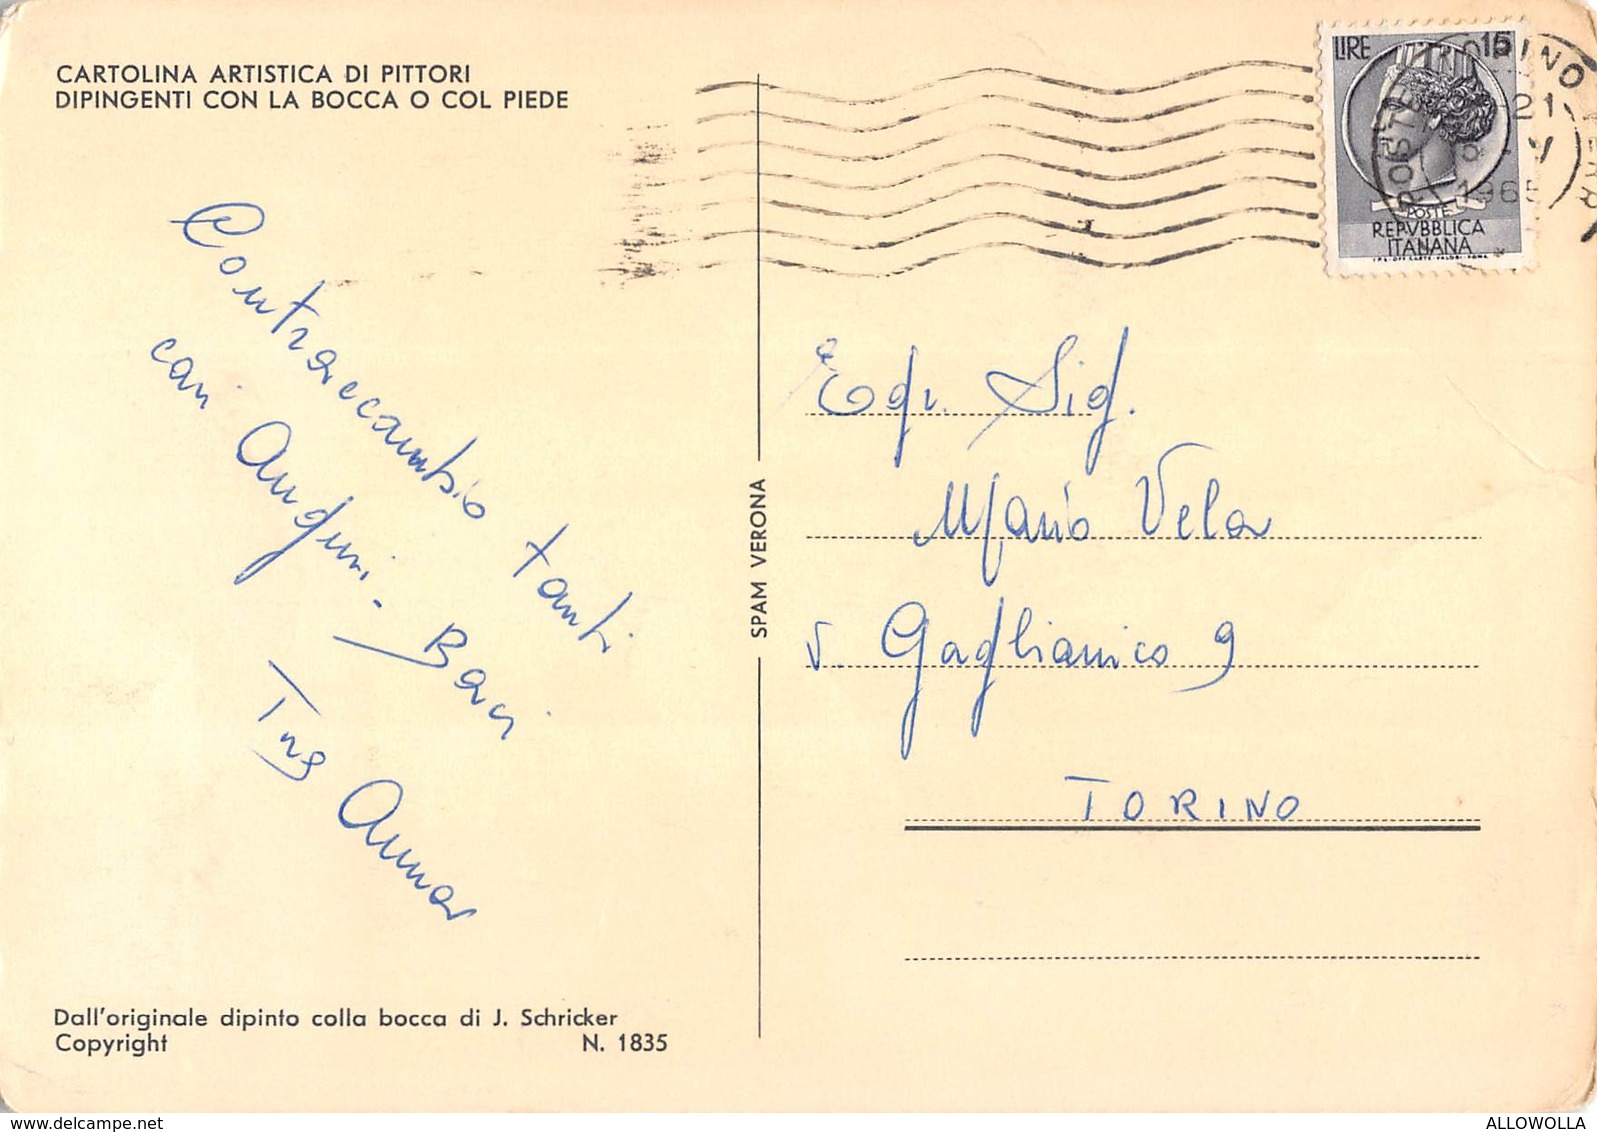 CARTOLINA ARTISTICA DI PITTORI
DIPINGENTI CON LA BOCCA O COL PIEDE
LIRE 15
POSTE
REPVBBLICA
ITALIANA
I.P.S. OFF. CARTE-VALORI-ROMA
TORINO
21
1965
Contraccambio tanti
cari Auguri. Baci
Anna
SPAM VERONA
Egr. Sig.
Mario Vela
v. Gaglianico 9
TORINO
Dall'originale dipinto colla bocca di J. Schricker
Copyright N. 1835
ALLOWOLLA